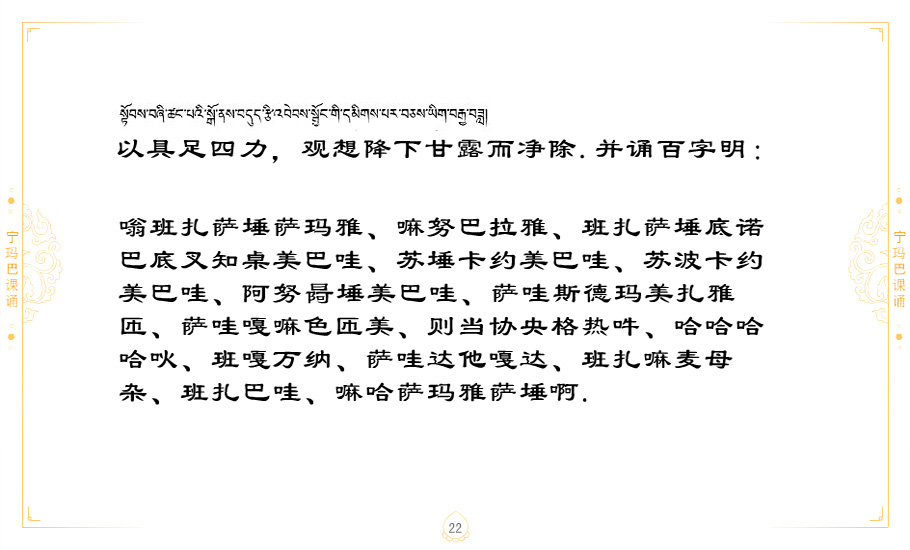 སྟོབས་བཞི་ཚང་པའི་སྒོ་ནས་བདུད་རྩི་འབེབས་སྦྱོང་གི་དམིགས་པར་བཅས་ཡིག་བརྒྱ་བཟླ།
以具足四力，观想降下甘露而净除.并诵百字明：
嗡班扎萨埵萨玛雅、嘛努巴拉雅、班扎萨埵底诺
巴底叉知桌美巴哇、苏埵卡约美巴哇、苏波卡约
美巴哇、阿努㖇埵美巴哇、萨哇斯德玛美扎雅
匝、萨哇嘎嘛色匝美、则当协央格热吽、哈哈哈
哈吙、班嘎万纳、萨哇达他嘎达、班扎嘛麦母
杂、班扎巴哇、嘛哈萨玛雅萨埵啊.
宁玛巴课诵
宁玛巴课诵
22